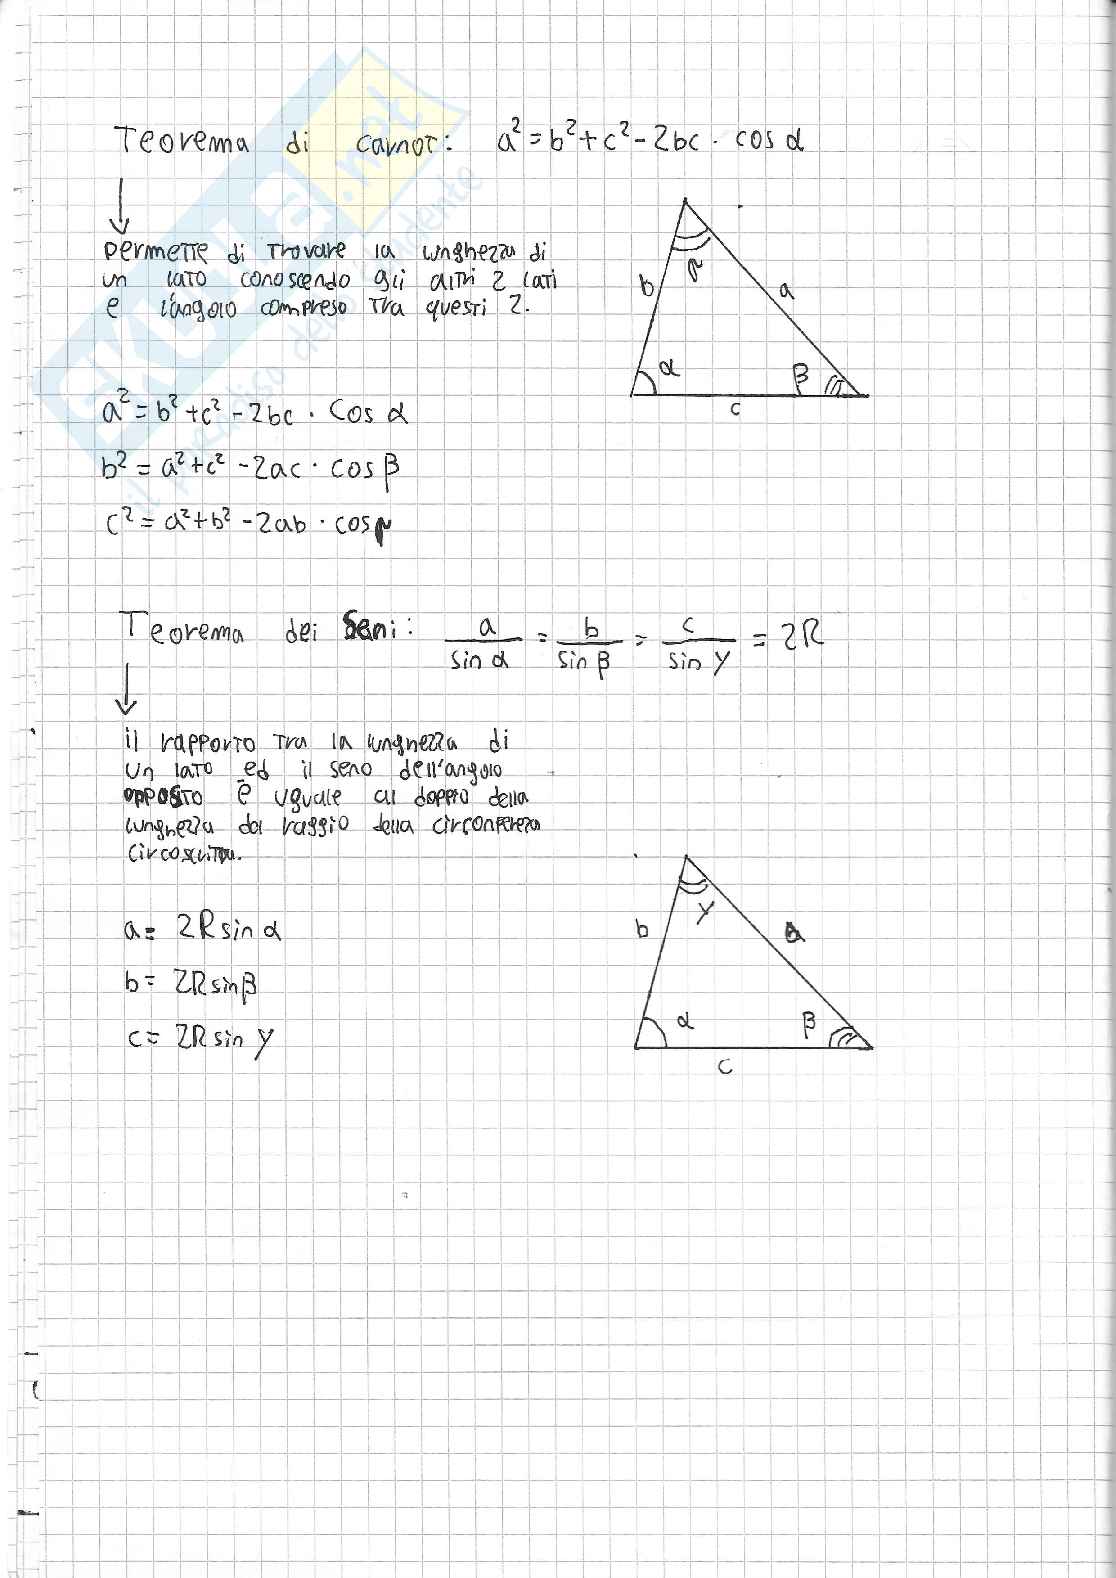 Teorema di Carnot: a² = b² + c² - 2bc · cos α
permette di trovare la lunghezza di
un lato conoscendo gli altri 2 lati
e l'angolo compreso tra questi 2.
b
a
α
β
c
a² = b² + c² - 2bc · cos α
b² = a² + c² - 2ac · cos β
c² = a² + b² - 2ab · cos γ
Teorema dei Seni: a/sin α = b/sin β = c/sin γ = 2R
il rapporto tra la lunghezza di
un lato ed il seno dell'angolo
opposto è uguale al doppio della
lunghezza del raggio della circonferenza
circoscritta.
γ
b
a
α
β
c
a = 2R sin α
b = 2R sin β
c = 2R sin γ
SKUOLA.net
il paradiso dello studente